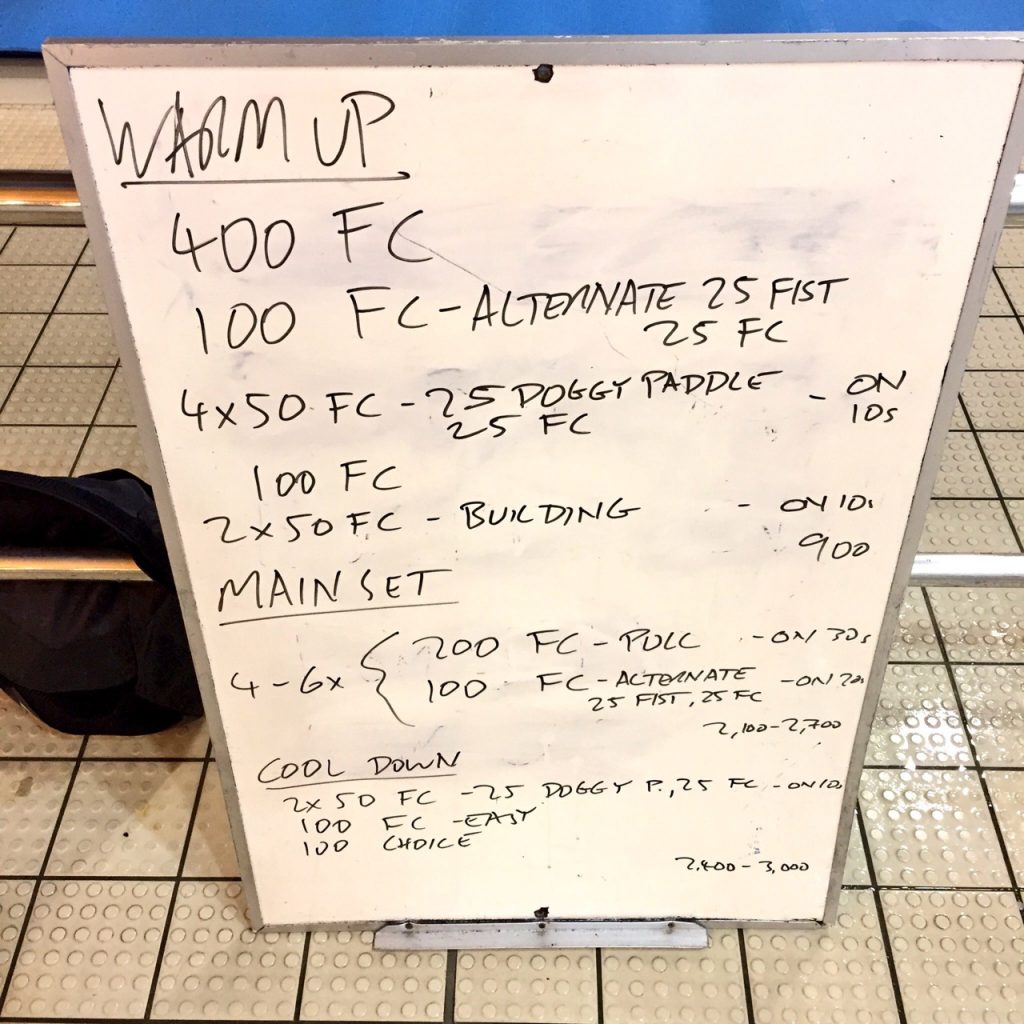 WARM UP
400 FC
100 FC - ALTERNATE 25 FIST
25 FC
4x50 FC - 25 DOGGY PADDLE - ON 10s
25 FC
100 FC
2x50 FC - BUILDING - ON 10s
900
MAIN SET
4-6x { 200 FC - PULL - ON 30s
100 FC - ALTERNATE - ON 20s
25 FIST, 25 FC
2,100-2,700
COOL DOWN
2x50 FC - 25 DOGGY P., 25 FC - ON 10s
100 FC - EASY
100 CHOICE
2,400-3,000